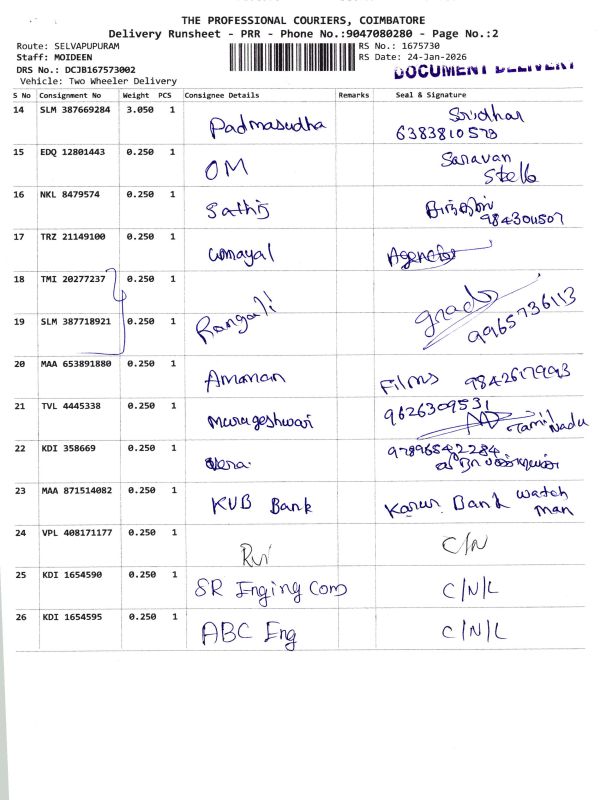 THE PROFESSIONAL COURIERS, COIMBATORE
Delivery Runsheet - PRR - Phone No.:9047080280 - Page No.:2
Route: SELVAPUPURAM
Staff: MOIDEEN
DRS No.: DCJB167573002
Vehicle: Two Wheeler Delivery
RS No.: 1675730
RS Date: 24-Jan-2026
DOCUMENT DELIVERY
S No Consignment No Weight PCS Consignee Details Remarks Seal & Signature
14 SLM 387669284 3.050 1 Padmasudha Sridhar
6383810573
15 EDQ 12801443 0.250 1 OM Saravan
Stells
16 NKL 8479574 0.250 1 Sathis
984304507
17 TRZ 21149100 0.250 1 umayal Agencies
18 TMI 20277237 0.250 1
19 SLM 387718921 0.250 1 Rangali
9965736113
20 MAA 653891880 0.250 1 Amman Films 9842617993
21 TVL 4445338 0.250 1 Murugeshwari 9626309531
Tamil Nadu
22 KDI 358669 0.250 1 Vera.
23 MAA 871514082 0.250 1 KVB Bank Karur Bank watch
man
24 VPL 408171177 0.250 1 C/N
25 KDI 1654590 0.250 1 SR Enging Com C/N/L
26 KDI 1654595 0.250 1 ABC Eng C/N/L